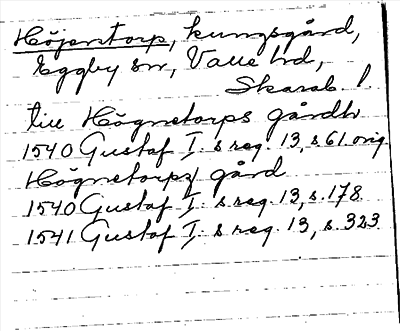 Höjentorp, kungsgård,
Eggby sn, Valle hd,
Skarab. l.
till Högnetorps gårdh
1540 Gustaf I:s reg. 13, s. 61. orig.
Högnetorps gård
1540 Gustaf I:s reg. 13, s. 178.
1541 Gustaf I:s reg. 13, s. 323.